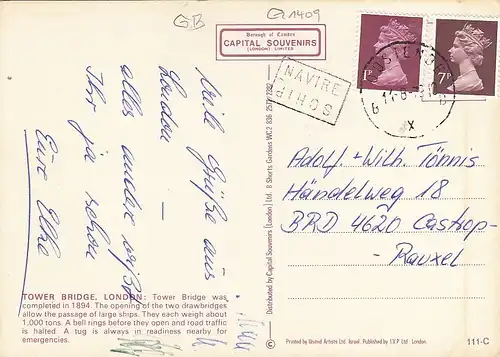 GB
G1409
Borough of Camden
CAPITAL SOUVENIRS
(LONDON) LIMITED
1P
7P
OOSTENDE
NAVIRE
Viele Grüße aus
London –
alles andere wißt
Ihr ja schon
Eure Elke
Adolf + Wilh. Tönnis
Händelweg 18
BRD 4620 Castrop-
Rauxel
Distributed by Capital Souvenirs (London) Ltd. 8 Shorts Gardens WC2 836
TOWER BRIDGE, LONDON: Tower Bridge was
completed in 1894. The opening of the two drawbridges
allow the passage of large ships. They each weigh about
1,000 tons. A bell rings before they open and road traffic
is halted. A tug is always in readiness nearby for
emergencies.
©
Printed by United Artists Ltd. Israel. Published by L.V.P Ltd. London.
111-C